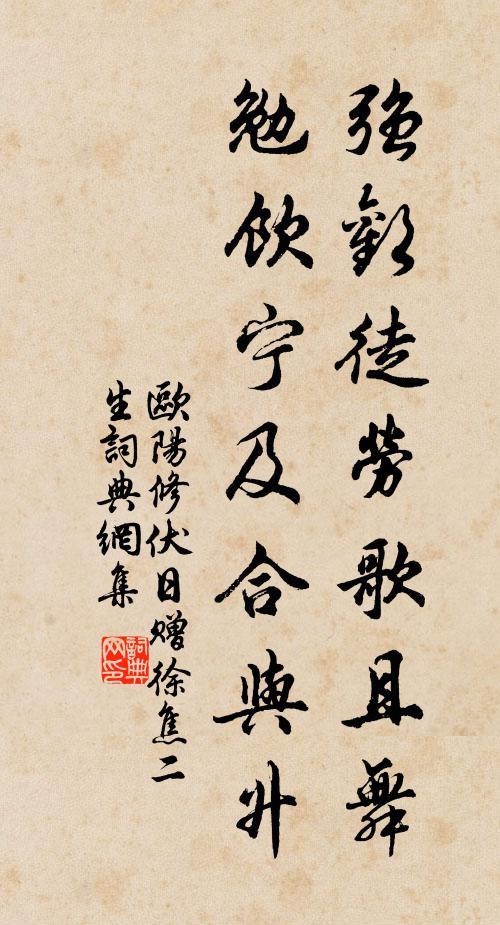 強歡徒勞歌且舞
勉飲宁及合與升
歐陽修伏日贈徐焦二
生詞典網集
詞典
网印